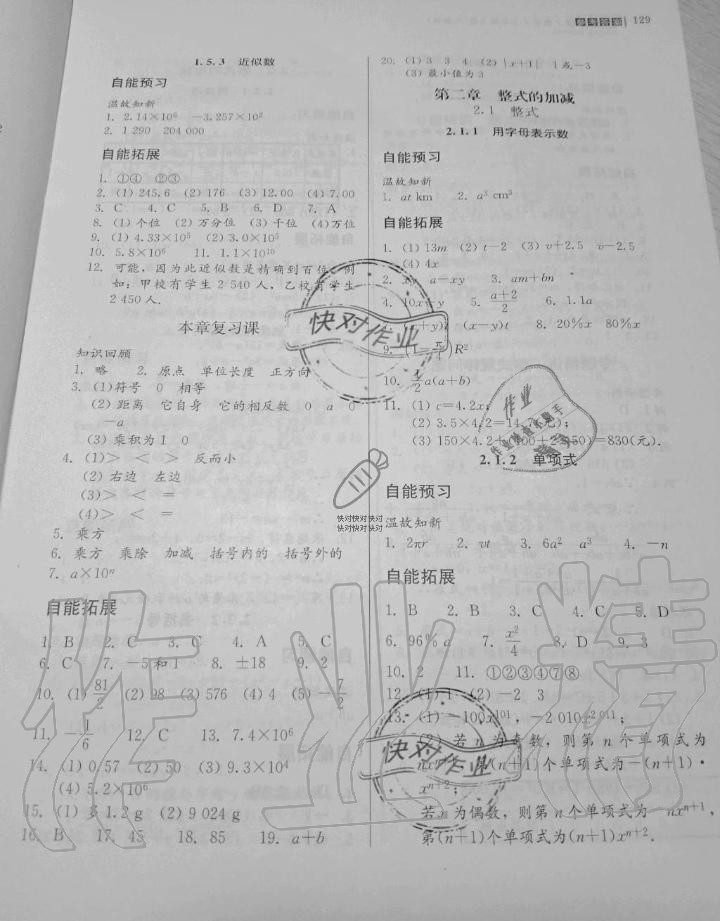 参考答案 129
1.5.3 近似数
自能预习
温故知新
1. 2.14×10⁶ −3.257×10²
2. 1 290 204 000
自能拓展
1. ①④ ②③
2. (1) 245.6 (2) 176 (3) 12.00 (4) 7.00
3. C 4. C 5. B 6. D 7. A
8. (1) 个位 (2) 万分位 (3) 千位 (4)万位
9. (1) 4.33×10⁵ (2) 3.0×10⁵
10. 5.8×10⁶ 11. 1.1×10¹⁰
12. 可能，因为此近似数是精确到百位，例
如：甲校有学生 2 540 人，乙校有学生
2 450 人.
本章复习课
知识回顾
1. 略 2. 原点 单位长度 正方向
3. (1)符号 0 相等
(2) 距离 它自身 它的相反数 0 a 0
−a
(3) 乘积为 1 0
4. (1)＞ ＜ ＞ 反而小
(2) 右边 左边
(3)＞ ＜ ＝
(4)＞ ＜ ＝
5. 乘方
6. 乘方 乘除 加减 括号内的 括号外的
7. a×10ⁿ
自能拓展
1. B 2. C 3. C 4. A 5. C
6. C 7. −5 和 1 8. ±18 9. 2
10. (1) 81/2 (2) 98 (3) 576 (4) 4 (5) −7/2
11. −1/6 12. C 13. 7.4×10⁶
14. (1) 0.57 (2) 50 (3) 9.3×10⁴
(4) 5.2×10⁶
15. (1) 多 1.2 g (2) 9 024 g
16. B 17. 45 18. 85 19. a+b
20. (1) 3 3 4 (2) |x+1| 1 或−3
(3) 最小值为 3
第二章 整式的加减
2.1 整式
2.1.1 用字母表示数
自能预习
温故知新
1. at km 2. a³ cm³
自能拓展
1. (1) 13m (2) t−2 (3) v+2.5 v−2.5
(4) 4x
2. xy a−xy 3. am+bn
4. 10x+y 5. (a+2)/2 6. 1.1a
+y) (x−y)t 8. 20%x 80%x
9. R²
10. 1/2a(a+b)
11. (1) c=4.2x;
(2) 3.5×4.2=14.7(元);
(3) 150×4.2+ 50)=830(元).
2.1.2 单项式
自能预习
温故知新
1. 2πr 2. vt 3. 6a² a³ 4. −n
自能拓展
1. B 2. B 3. C 4. C 5. D
6. 96% a 7. x²/4 8. D 9. 3
10. 2 11. ①②③④⑦⑧
12. (1) 1 (2) −2 3
13. (1) −100x¹⁰¹, −2 010x²⁰¹¹;
(2) 若 n 为奇数，则第 n 个单项式为
(n+1)个单项式为−(n+1)·
xⁿ⁺²;
若 n 为偶数，则第 n 个单项式为 nxⁿ⁺¹,
第(n+1)个单项式为(n+1)xⁿ⁺².
快对作业
快对快对快对
快对快对快对
作业
快对作业
作业精灵